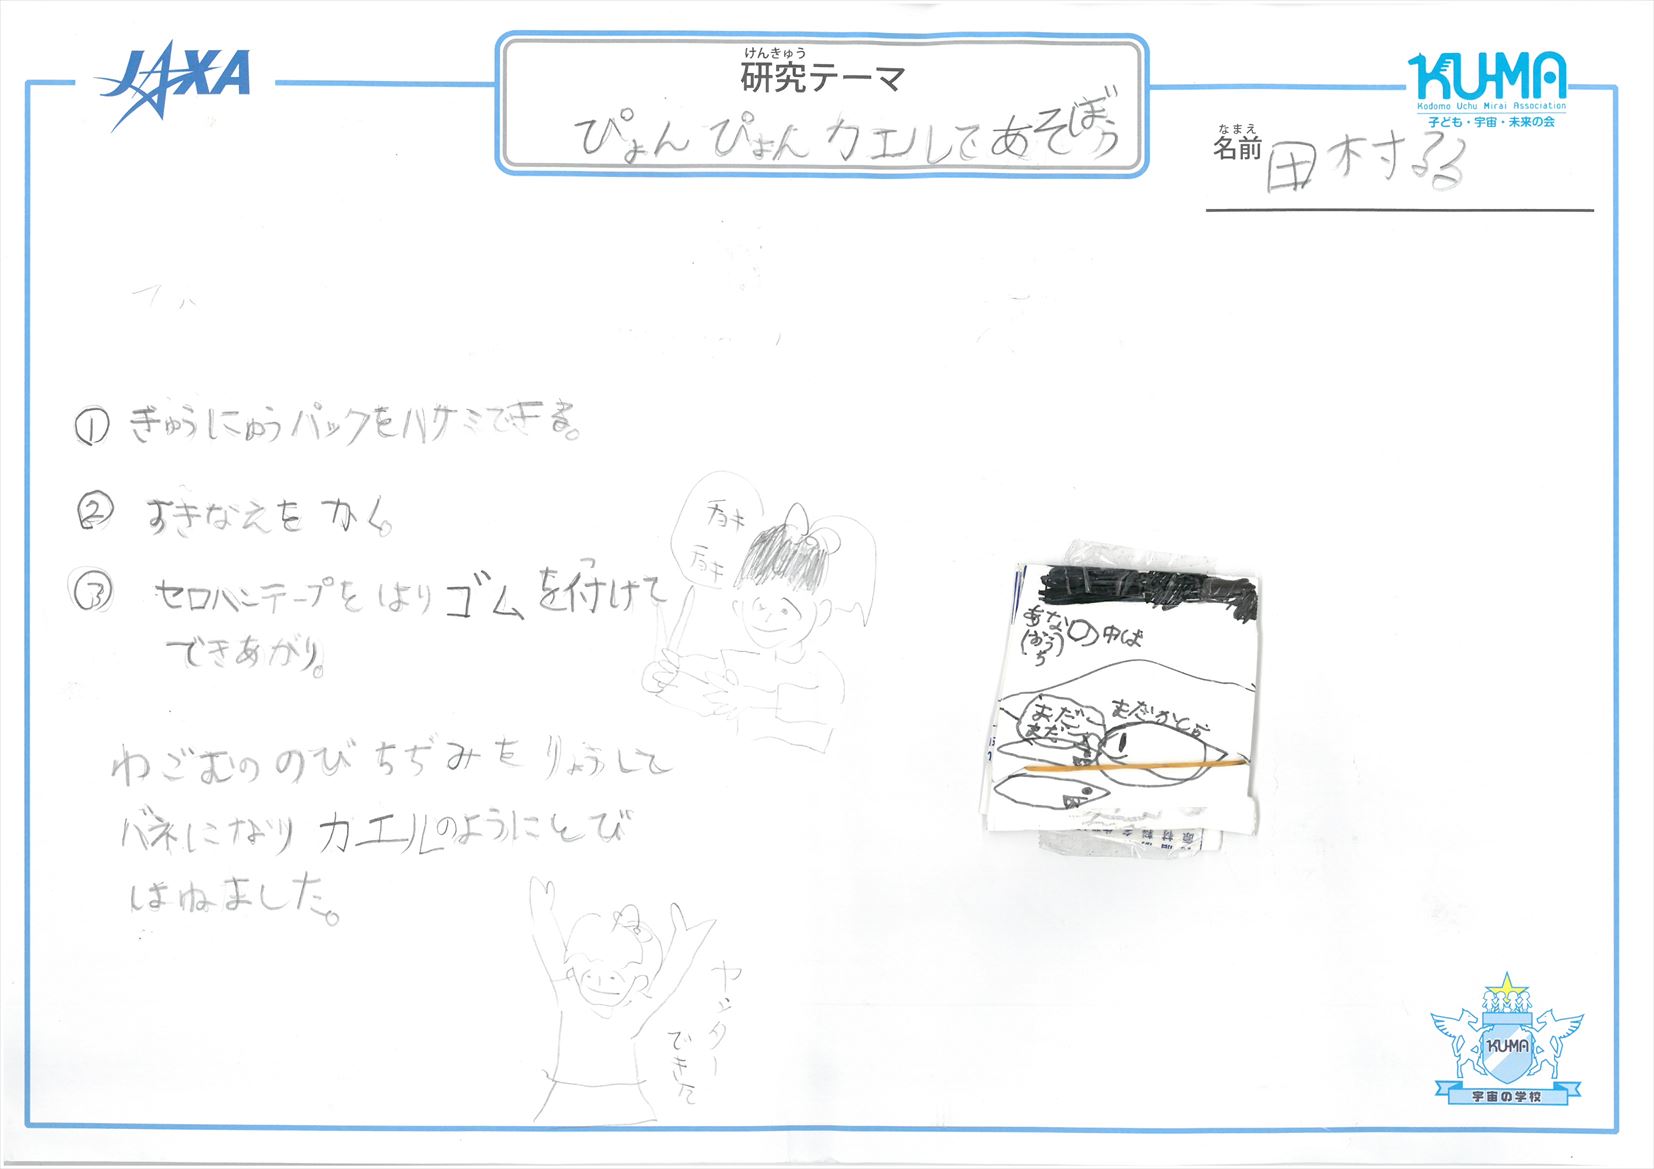 JAXA
けんきゅう
研究テーマ
ぴょんぴょんカエルであそぼう
KU-MA
Kodomo Uchu Mirai Association
子ども・宇宙・未来の会
なまえ
名前 田村るる
① ぎゅうにゅうパックをハサミできる。
② すきなえをかく。
③ セロハンテープをはりゴムを付けて
できあがり。
チョキ
チョキ
わごむののびちぢみをりようして
バネになりカエルのようにとび
はねました。
ヤッター
できた
あなの中は
(おうち)
まだ
まだ
まだかとう
KU-MA
宇宙の学校